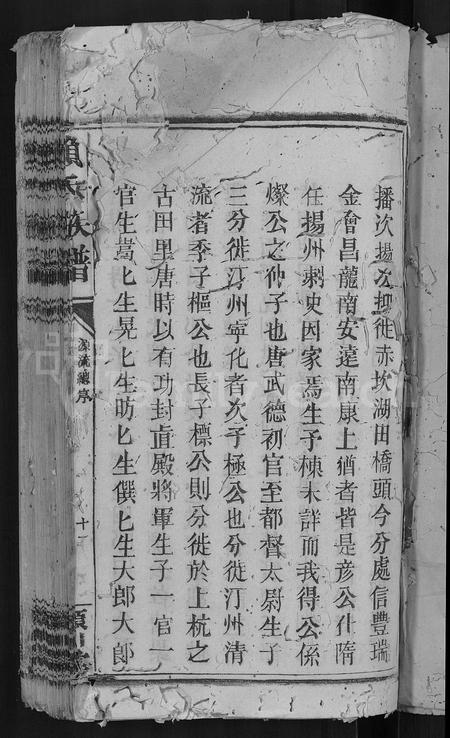 播次揚次抑徙赤坎湖田橋頭今分處信豐瑞
金會昌龍南安遠南康上猶者皆是彦公仕隋
任揚州刺史因家焉生子棟未詳而我得公係
燦公之仲子也唐武德初官至都督太尉生子
三分徙汀州寧化者次子極公也分徙汀州清
流者季子樞公也長子標公則分徙於上杭之
古田里唐時以有功封直殿將軍生子一官一
官生蒿匕生晃匕生昉匕生僎匕生大郎大郎
賴氏族譜
源流總序
十